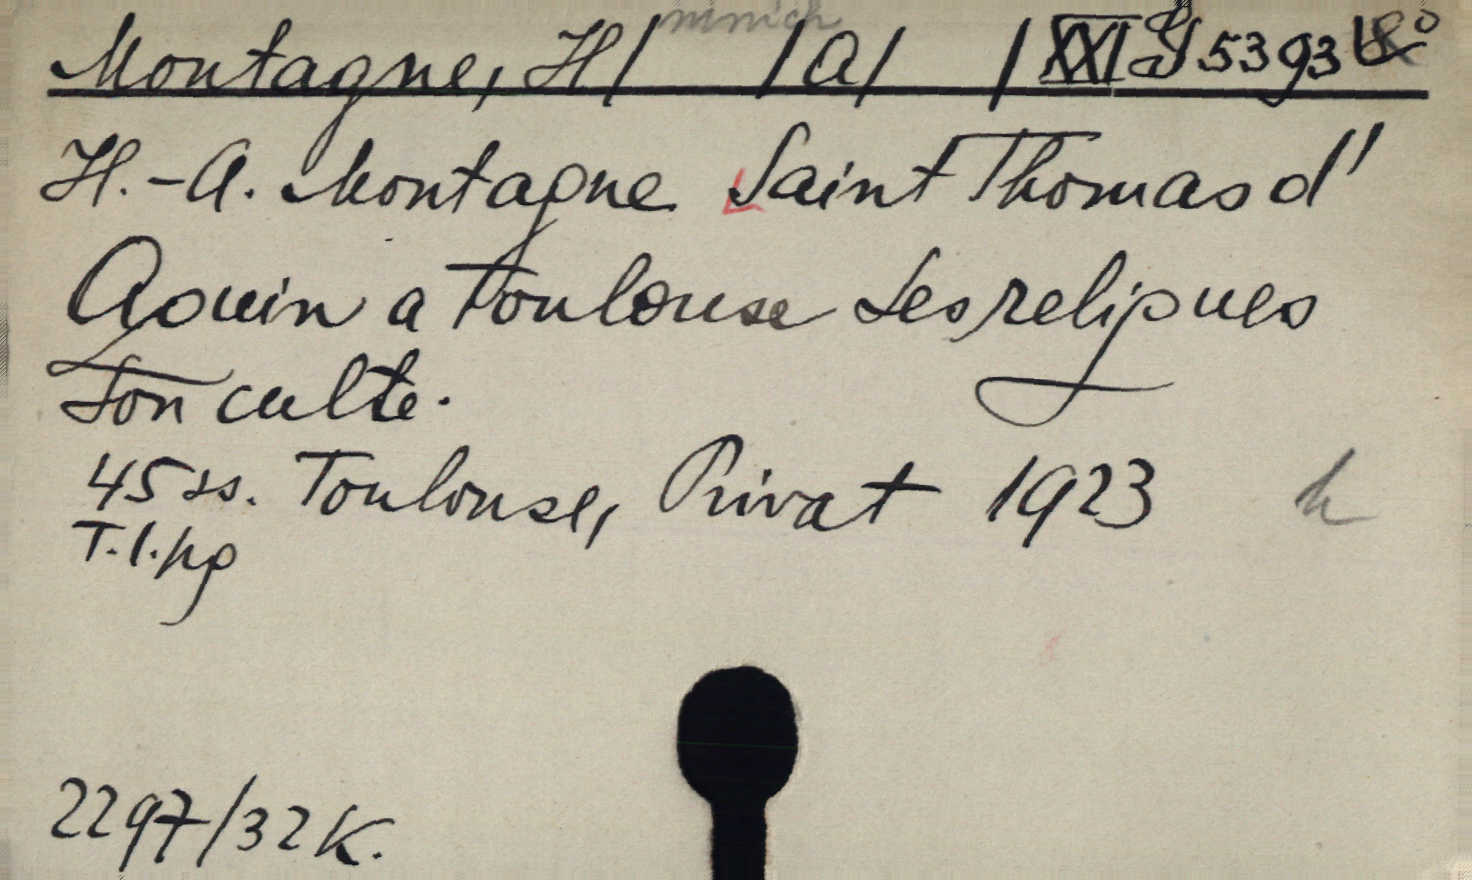 Montagne, H/ /A/ / XXI J 5393
H.-A. Montagne Saint Thomas d'
Aquin a Toulouse Ses reliques
Son culte.
45 ss. Toulouse, Privat 1923 h
T.l.pg
2297/32 K.